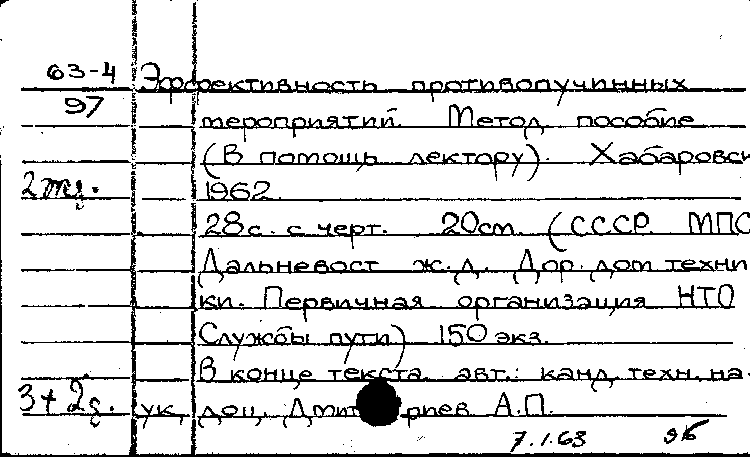 63-4 Эффективность противопучинных
97 мероприятий. Метод. пособие
(В помощь лектору). Хабаровск
1962.
28с. с черт. 20см. (СССР. МПС
Дальневост. ж.д. Дор. дом техни
ки. Первичная организация НТО
Службы пути) 150 экз.
В конце текста авт.: канд. техн. на-
3+2д. ук, доц. Дмит риев А.П.
7.1.63